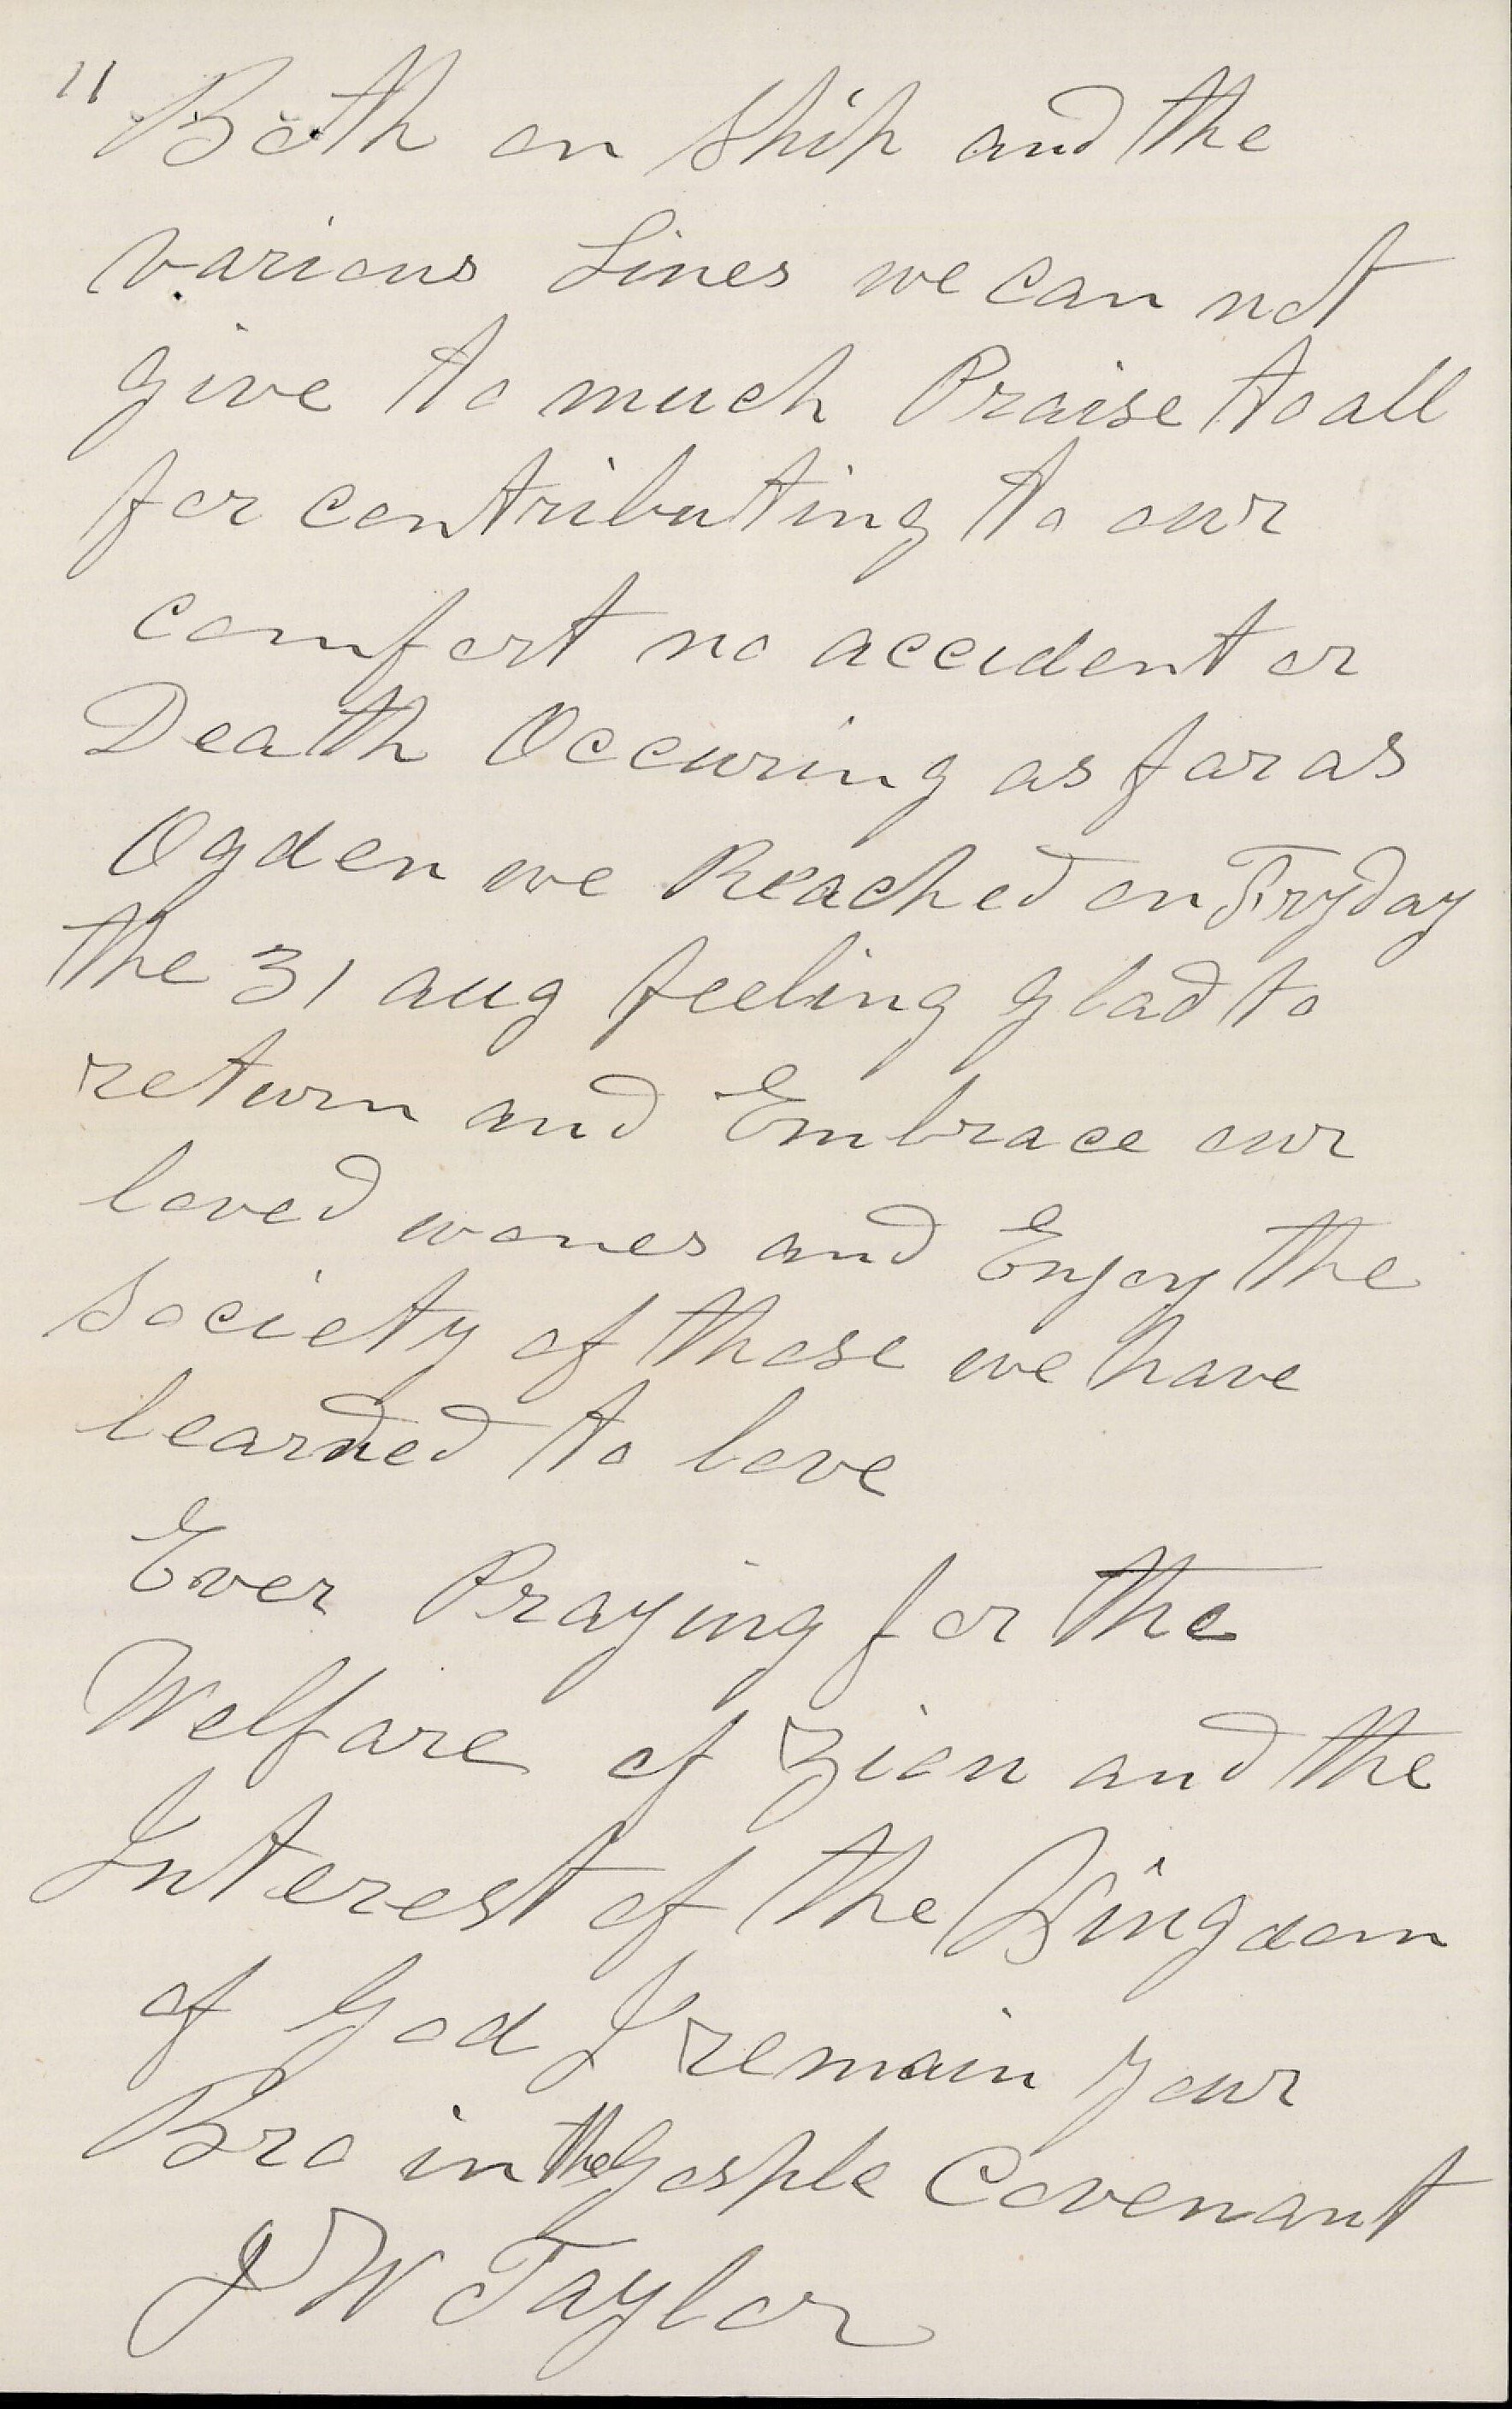 11 Both on Ship and the
various Lines we can not
give to much Praise to all
for contributing to our
comfort no accident or
Death Occuring as far as
Ogden we Reached on Fryday
the 31 aug feeling glad to
return and Embrace our
loved wones and Enjoy the
society of those we have
learned to love
Ever Praying for the
Welfare of Zion and the
Interest of the Kingdom
of God I remain your
Bro in the Gosple Covenant
J W Taylor